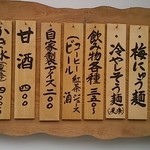 梅にゅう麺
・冷やしそう麺
飲み物各種 三五〇〜
(コーヒー 紅茶 ジュース
ビール 酒)
自家製アイス 二〇〇
甘酒 四〇〇